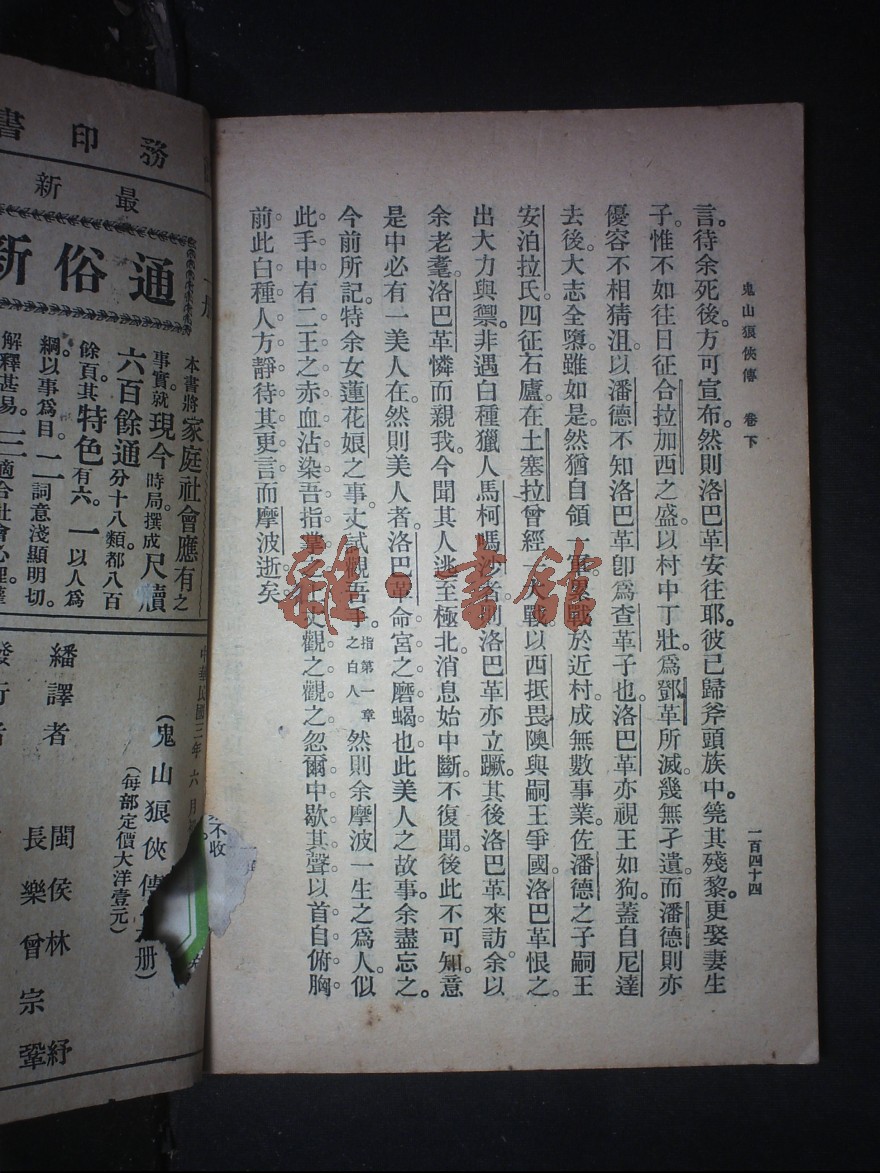 鬼山狼俠傳 卷下
一百四十四
言。待余死後。方可宣布。然則洛巴革安往耶。彼已歸斧頭族中。撓其殘黎。更娶妻生
子。惟不如往日征合拉加西之盛。以村中丁壯。爲鄧革所滅。幾無孑遺。而潘德則亦
優容不相猜沮。以潘德不知洛巴革卽爲查革子也。洛巴革亦視王如狗。蓋自尼達
去後。大志全隳。雖如是。然猶自領一軍。累戰於近村。成無數事業。佐潘德之子嗣王
安泊拉氏。四征石廬。在土塞拉曾經一大戰。以西抵畏隩與嗣王爭國。洛巴革恨之。
出大力與禦。非遇白種獵人馬柯瑪沙者。則洛巴革亦立蹶。其後洛巴革來訪余。以
余老耄。洛巴革憐而親我。今聞其人逃至極北。消息始中斷。不復聞。後此不可知。意
是中必有一美人在。然則美人者。洛巴革命宮之磨蝎也。此美人之故事。余盡忘之。
今前所記。特余女蓮花娘之事。丈試觀吾手。指第一章之白人 然則余摩波一生之爲人。似
此手中有二王之赤血。沾染吾指掌之上。丈觀之觀之。忽爾中歇。其聲以首自俯胸
前。此白種人方靜待其更言。而摩波逝矣。
雜·書館
務印書
最新
通俗新
本書將家庭社會應有之
事實。就現今時局撰成尺牘
六百餘通分十八類都八百
餘頁。其特色有六。一以人爲
綱以事爲目。二詞意淺顯明切。
解釋甚易。三適合社會心理
中華民國三年六月
(鬼山狼俠傳 册)
(每部定價大洋壹元)
繙譯者 閩侯林紓
長樂曾宗鞏
發行者
不收